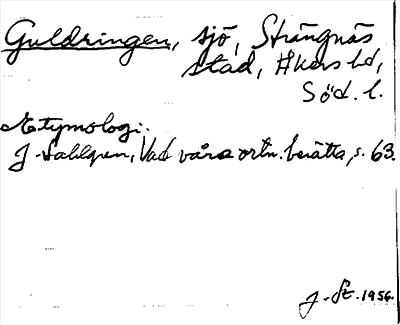 Guldringen, sjö, Strängnäs
stad, Åkers hd,
Söd. l.
Etymologi:
J. Sahlgren, Vad våra ortn. berätta, s. 63.
J. St. 1956.